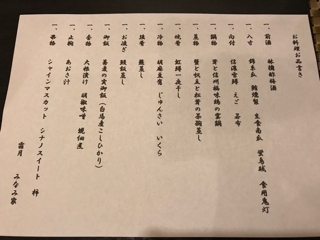 お料理お品書き
一、前酒　林檎酢梅酒
一、八寸　錦玉瓜　鱒燻製　生食南瓜　蛍烏賊　食用鬼灯
一、向付　信濃雪鱒　えご　若布
一、鍋物　茸と信州福味鶏の雲鍋
一、蓋物　蟹と帆立と松茸の茶碗蒸し
一、焼肴　虹鱒一夜干し
一、冷物　胡麻豆腐　じゅんさい　いくら
一、強肴　蕪蒸し
一、お凌ぎ　鰻飯蒸し
一、御飯　蕎麦の実御飯（白馬産こしひかり）
一、香物　大根漬け　胡椒味噌
一、止椀　あおさ汁
一、果物　シャインマスカット　シナノスイート　柿
霜月　みなみ家